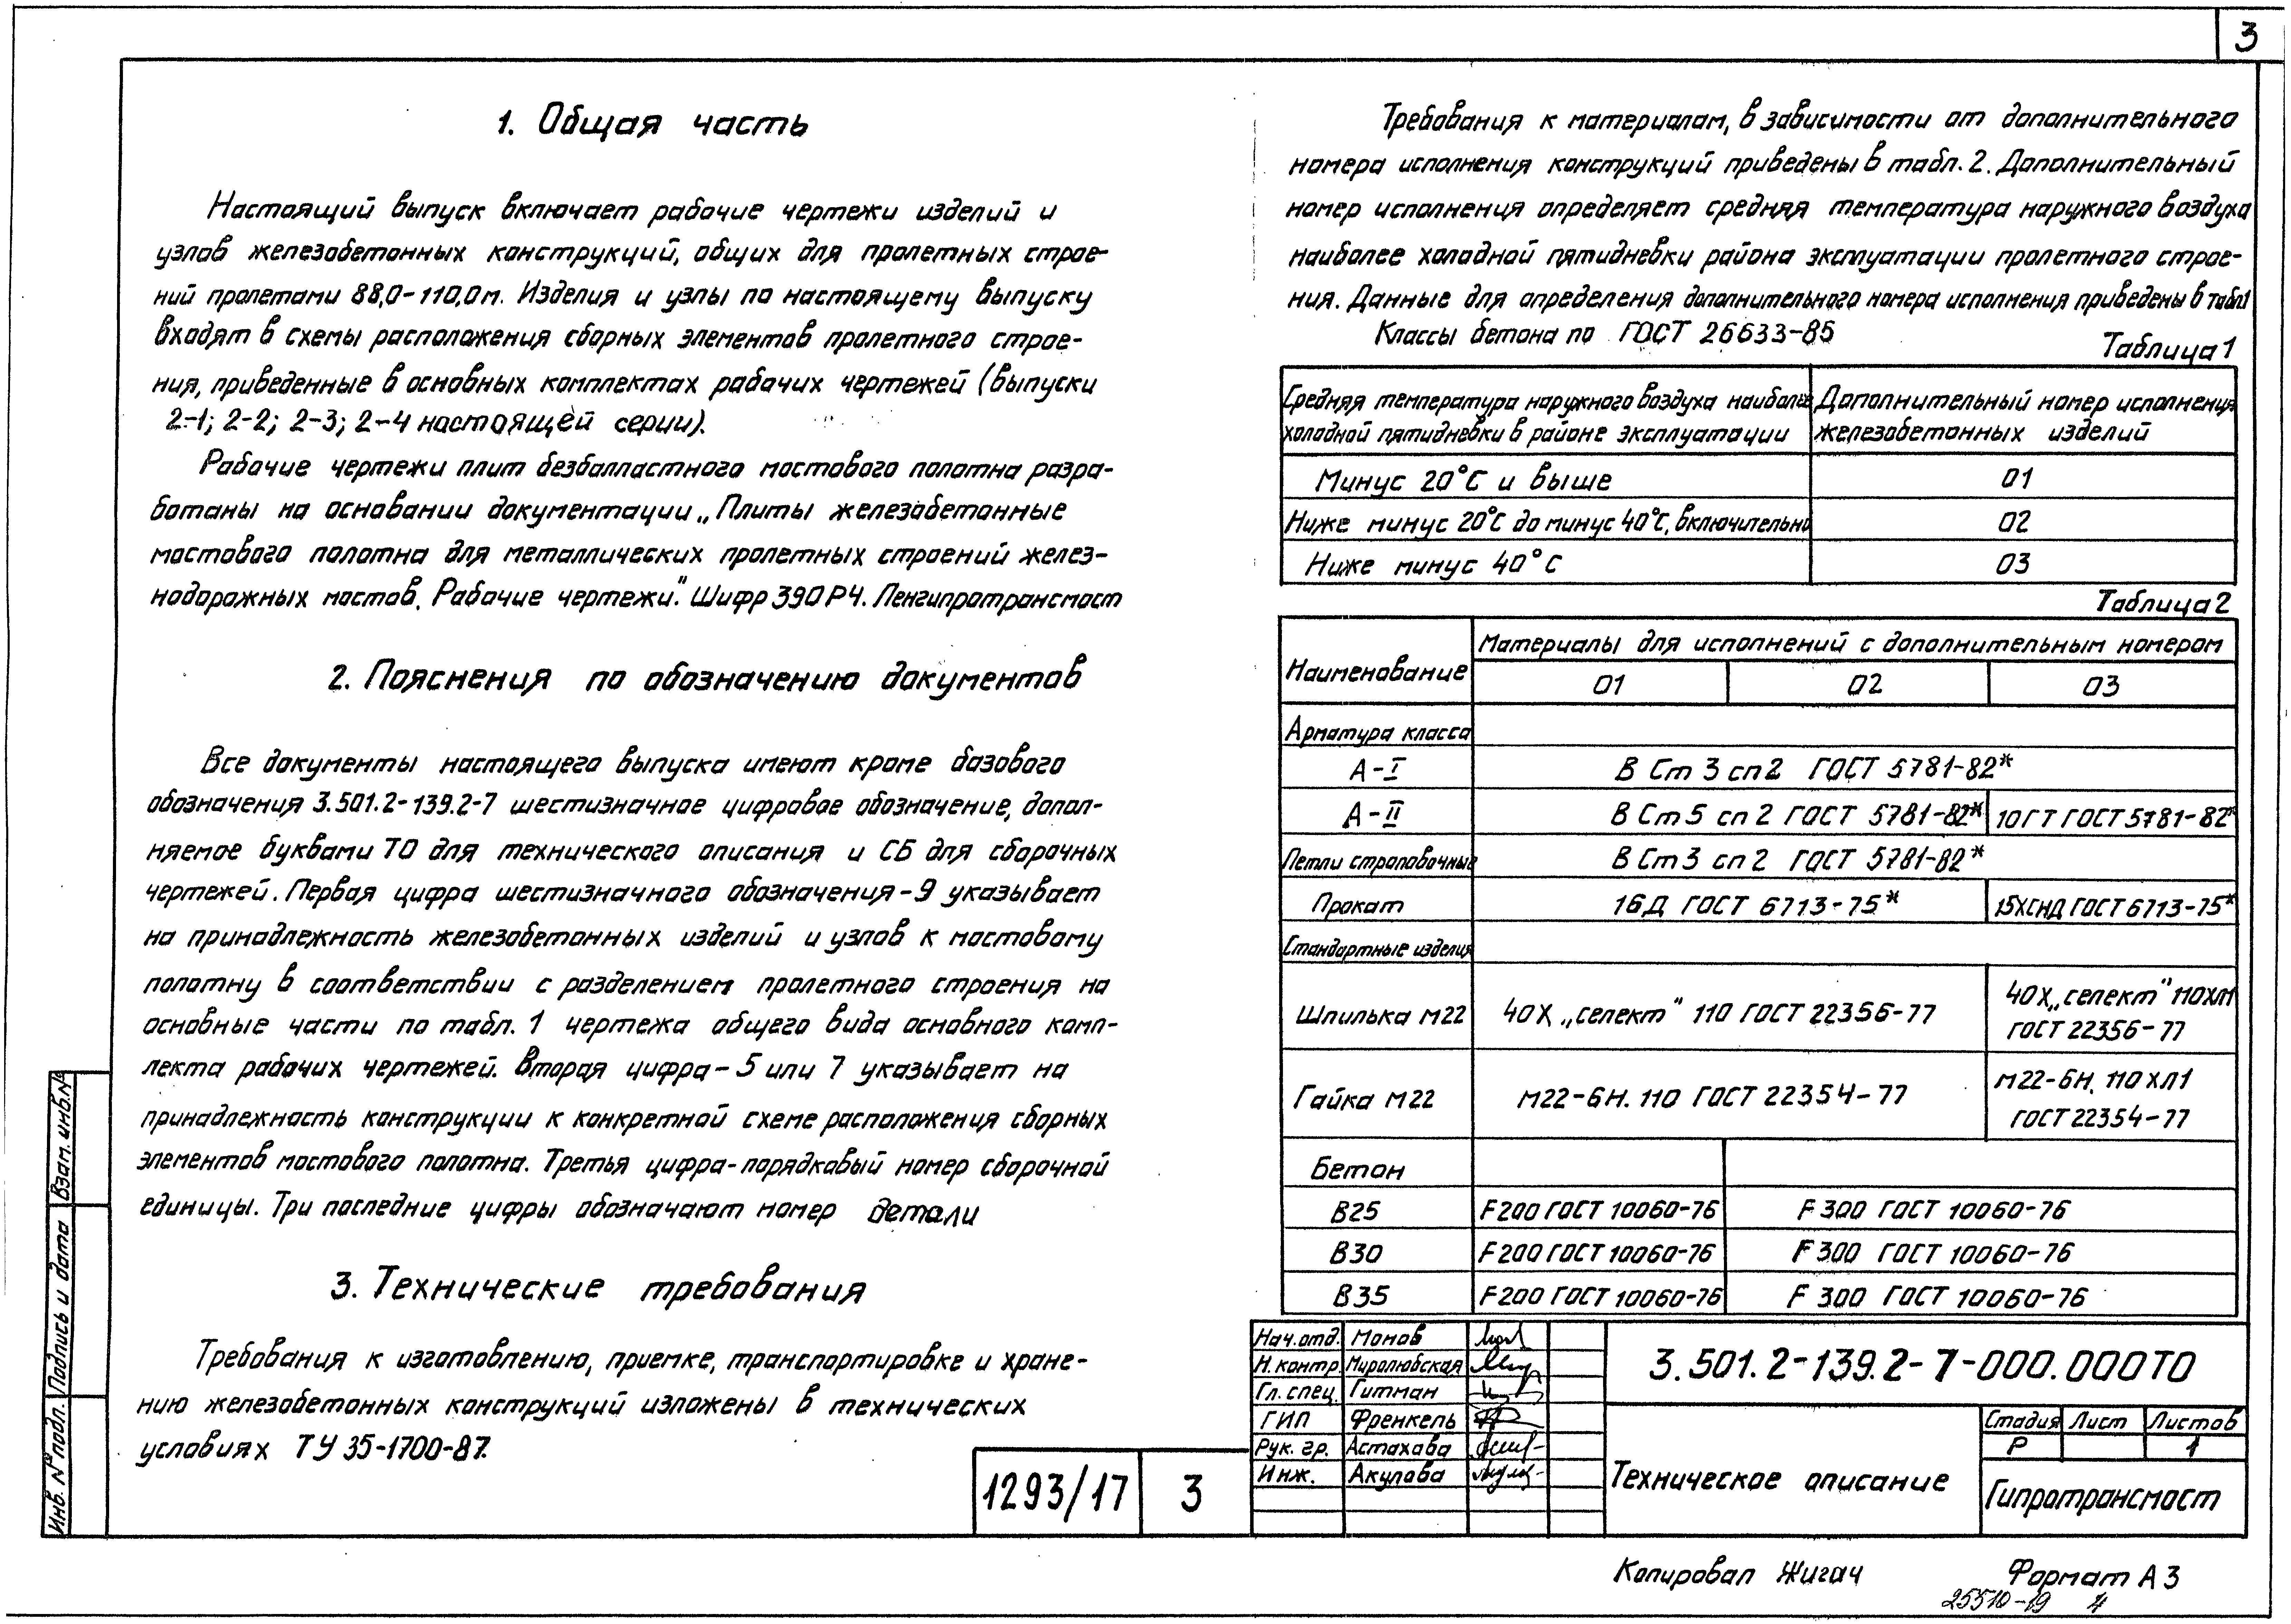 3
1. Общая часть
Настоящий выпуск включает рабочие чертежи изделий и
узлов железобетонных конструкций, общих для пролетных строе-
ний пролетами 88,0-110,0м. Изделия и узлы по настоящему выпуску
входят в схемы расположения сборных элементов пролетного строе-
ния, приведенные в основных комплектах рабочих чертежей (выпуски
2-1; 2-2; 2-3; 2-4 настоящей серии).
Рабочие чертежи плит безбалластного мостового полотна разра-
ботаны на основании документации „Плиты железобетонные
мостового полотна для металлических пролетных строений желез-
нодорожных мостов. Рабочие чертежи". Шифр 390РЧ. Ленгипротрансмост
2. Пояснения по обозначению документов
Все документы настоящего выпуска имеют кроме базового
обозначения 3.501.2-139.2-7 шестизначное цифровое обозначение, допол-
няемое буквами ТО для технического описания и СБ для сборочных
чертежей. Первая цифра шестизначного обозначения-9 указывает
на принадлежность железобетонных изделий и узлов к мостовому
полотну в соответствии с разделением пролетного строения на
основные части по табл. 1 чертежа общего вида основного комп-
лекта рабочих чертежей. Вторая цифра-5 или 7 указывает на
принадлежность конструкции к конкретной схеме расположения сборных
элементов мостового полотна. Третья цифра-порядковый номер сборочной
единицы. Три последние цифры обозначают номер детали
3. Технические требования
Требования к изготовлению, приемке, транспортировке и хране-
нию железобетонных конструкций изложены в технических
условиях ТУ 35-1700-87.
Требования к материалам, в зависимости от дополнительного
номера исполнения конструкций приведены в табл. 2. Дополнительный
номер исполнения определяет средняя температура наружного воздуха
наиболее холодной пятидневки района эксплуатации пролетного строе-
ния. Данные для определения дополнительного номера исполнения приведены в табл1
Классы бетона по ГОСТ 26633-85
Таблица 1
Средняя температура наружного воздуха наиболее Дополнительный номер исполнения
холодной пятидневки в районе эксплуатации железобетонных изделий
Минус 20°С и выше 01
Ниже минус 20°С до минус 40°С, включительно 02
Ниже минус 40°С 03
Таблица 2
Наименование Материалы для исполнений с дополнительным номером
01 02 03
Арматура класса
А-I В Ст 3 сп2 ГОСТ 5781-82*
А-II В Ст 5 сп 2 ГОСТ 5781-82* 10ГТ ГОСТ 5781-82*
Петли строповочные В Ст 3 сп 2 ГОСТ 5781-82*
Прокат 16Д ГОСТ 6713-75* 15ХСНД ГОСТ 6713-75*
Стандартные изделия
Шпилька М22 40Х „селект" 110 ГОСТ 22356-77 40Х „селект" 110ХЛ1
ГОСТ 22356-77
Гайка М22 М22-6Н. 110 ГОСТ 22354-77 М22-6Н. 110 ХЛ1
ГОСТ 22354-77
Бетон
В25 F200 ГОСТ 10060-76 F 300 ГОСТ 10060-76
В30 F200 ГОСТ 10060-76 F 300 ГОСТ 10060-76
В35 F200 ГОСТ 10060-76 F 300 ГОСТ 10060-76
Нач.отд. Монов
Н. контр. Миролюбская
Гл. спец. Гитман
ГИП Френкель
Рук. гр. Астахова
Инж. Акулова
3.501.2-139.2-7-000.000ТО
Техническое описание
Стадия Лист Листов
Р 1
Гипротрансмост
1293/17 3
Инв. № подл. Подпись и дата Взам. инв.№
Копировал Жигач Формат А3
25510-19 4